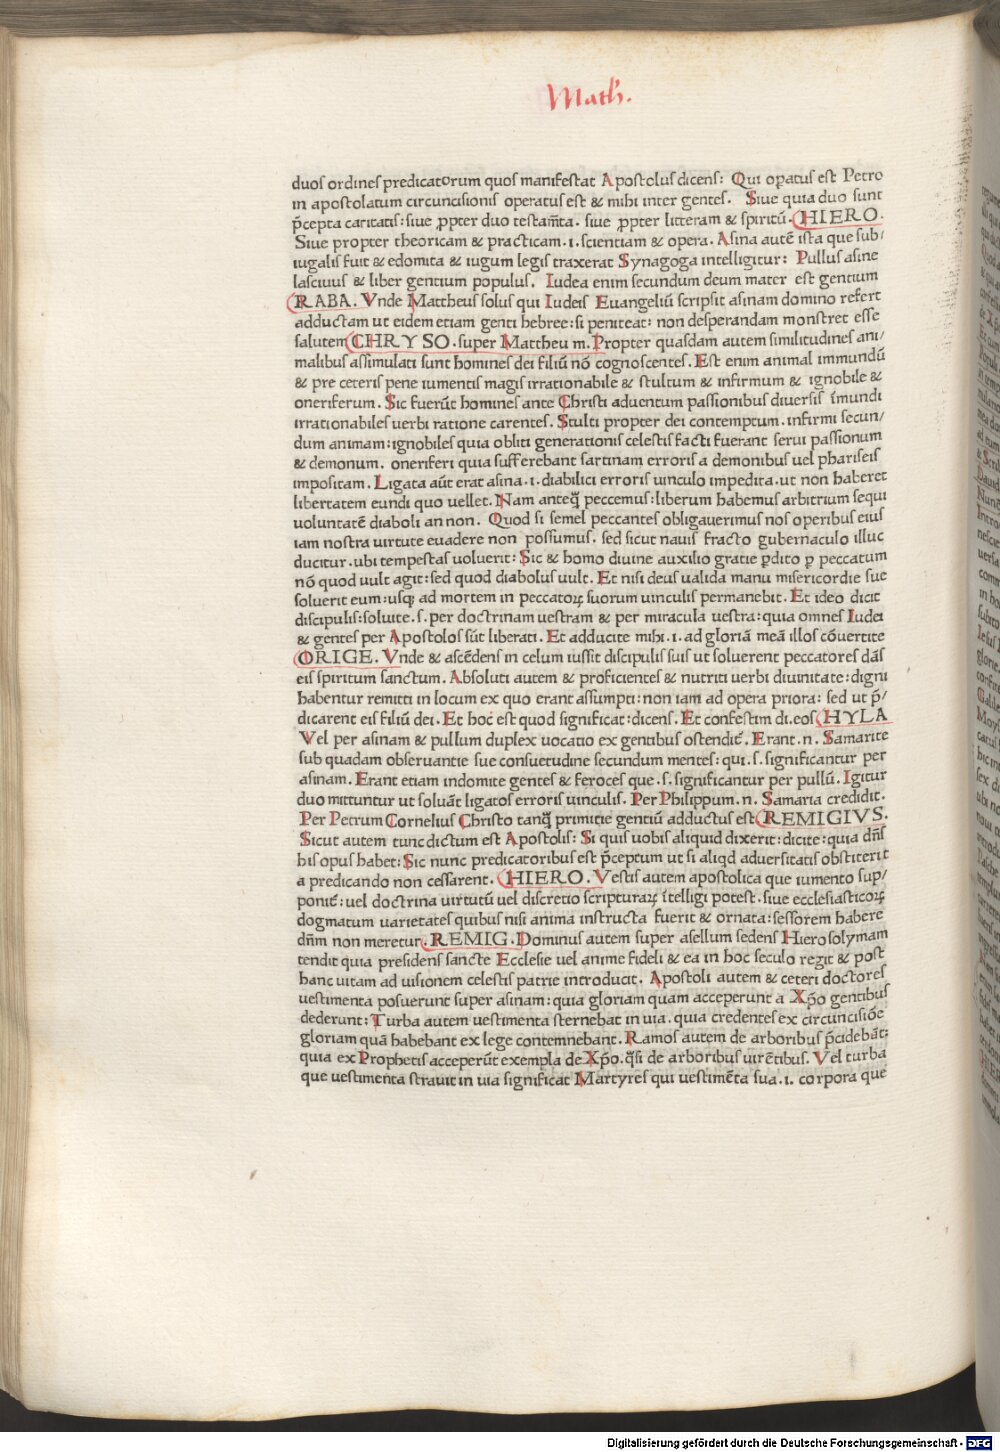 Math.
duos ordines predicatorum quos manifestat Apostolus dicens: Qui opatus est Petro
in apostolatum circuncisionis operatus est & mihi inter gentes. Siue quia duo sunt
p̄cepta caritatis: siue ꝓpter duo testam̄ta. siue ꝓpter litteram & spiritū. HIERO.
Siue propter theoricam & practicam .i. scientiam & opera. Asina autē ista que sub/
iugalis fuit & edomita & iugum legis traxerat Synagoga intelligitur: Pullus asine
lasciuus & liber gentium populus. Iudea enim secundum deum mater est gentium
RABA. Vnde Mattheus solus qui Iudeis Euangeliū scripsit asinam domino refert
adductam ut eidem etiam genti hebree: si peniteat: non desperandam monstret esse
salutem CHRYSO. super Mattheu m. Propter quasdam autem similitudines ani/
malibus assimulati sunt homines dei filiū nō cognoscentes. Est enim animal immundū
& pre ceteris pene iumentis magis irrationabile & stultum & infirmum & ignobile &
oneriferum. Sic fuerūt homines ante Christi aduentum passionibus diuersis īmundi
irrationabiles uerbi ratione carentes. Stulti propter dei contemptum. infirmi secun/
dum animam: ignobiles quia obliti generationis celestis facti fuerant serui passionum
& demonum. oneriferi quia sufferebant sartinam erroris a demonibus uel phariseis
impositam. Ligata aūt erat asina .i. diabilici erroris uinculo impedita. ut non haberet
libertatem eundi quo uellet. Nam anteq̄ peccemus: liberum habemus arbitrium sequi
uoluntatē diaboli an non. Quod si semel peccantes obligauerimus nos operibus eius
iam nostra uirtute euadere non possumus. sed sicut nauis fracto gubernaculo illuc
ducitur. ubi tempestas uoluerit: Sic & homo diuine auxilio gratie ꝑdito ꝑ peccatum
nō quod uult agit: sed quod diabolus uult. Et nisi deus ualida manu misericordie sue
soluerit eum: usq; ad mortem in peccatoꝝ suorum uinculis permanebit. Et ideo dicit
discipulis: soluite .s. per doctrinam uestram & per miracula uestra: quia omnes Iudei
& gentes per Apostolos sūt liberati. Et adducite mihi .i. ad gloriā meā illos cōuertite
ORIGE. Vnde & ascēdens in celum iussit discipulis suis ut soluerent peccatores dās
eis spiritum sanctum. Absoluti autem & proficientes & nutriti uerbi diuinitate: digni
habentur remitti in locum ex quo erant assumpti: non iam ad opera priora: sed ut p̄/
dicarent eis filiū dei. Et hoc est quod significat: dicens. Et confestim di. eos HYLA
Vel per asinam & pullum duplex uocatio ex gentibus ostendit᷑. Erant .n. Samarite
sub quadam obseruantie sue consuetudine secundum mentes: qui .s. significantur per
asinam. Erant etiam indomite gentes & feroces que .s. significantur per pullū. Igitur
duo mittuntur ut soluāt ligatos erroris uinculis. Per Philippum .n. Samaria credidit.
Per Petrum Cornelius Christo tanq̄ primitie gentiū adductus est REMIGIVS.
Sicut autem tunc dictum est Apostolis: Si quis uobis aliquid dixerit: dicite: quia dn̄s
his opus habet: Sic nunc predicatoribus est p̄ceptum ut si aliqd aduersitatis obstiterit
a predicando non cessarent. HIERO. Vestis autem apostolica que iumento sup/
ponit᷑: uel doctrina uirtutū uel discretio scripturaꝝ ītelligi potest. siue ecclesiasticoꝝ
dogmatum uarietates quibus nisi anima instructa fuerit & ornata: sessorem habere
dn̄m non meretur. REMIG. Dominus autem super asellum sedens Hierosolymam
tendit quia presidens sancte Ecclesie uel anime fideli & ea in hoc seculo regit & post
hanc uitam ad uisionem celestis patrie introducit. Apostoli autem & ceteri doctores
uestimenta posuerunt super asinam: quia gloriam quam acceperunt a Xp̄o gentibus
dederunt: Turba autem uestimenta sternebat in uia. quia credentes ex circuncisiōe
gloriam quā habebant ex lege contemnebant. Ramos autem de arboribus p̄cidebāt:
quia ex Prophetis acceperūt exempla de Xp̄o. q̄si de arboribus uirētibus. Vel turba
que uestimenta strauit in uia significat Martyres qui uestimēta sua .i. corpora que
Digitalisierung gefördert durch die Deutsche Forschungsgemeinschaft - DFG